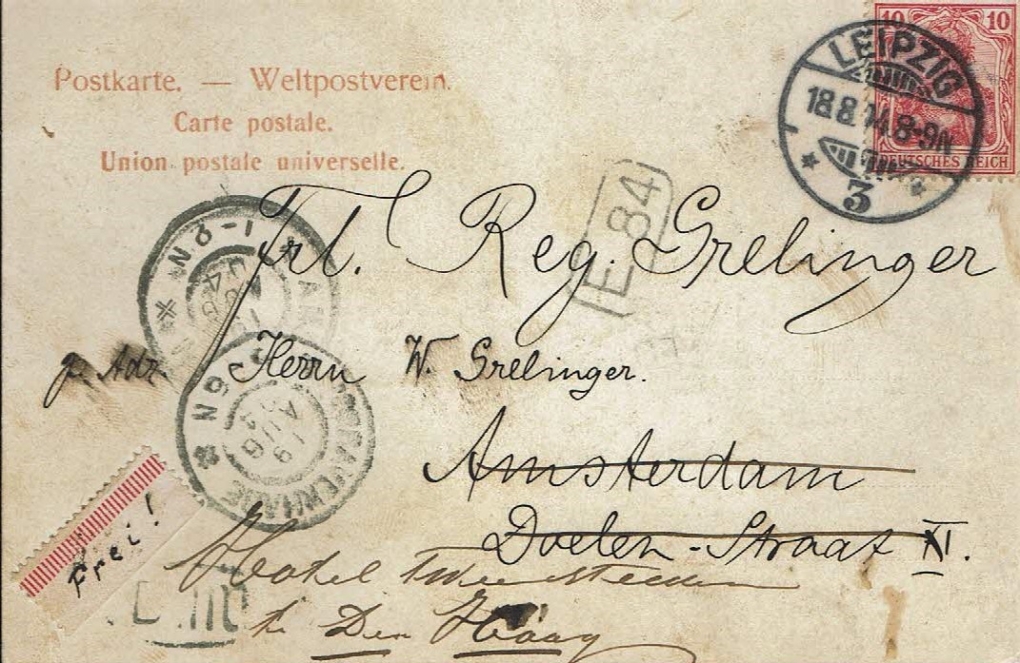 10 10
LEIPZIG
18.8.04.8-9N
3
DEUTSCHES REICH
Postkarte. — Weltpostverein.
Carte postale.
Union postale universelle.
E 84
Frl. Reg. Grelinger
p. Adr. Herrn W. Grelinger.
Amsterdam
Doelen-Straat XI.
Hotel twee steden
Den Haag
frei!
'S GRAVENHAGE
19 AUG